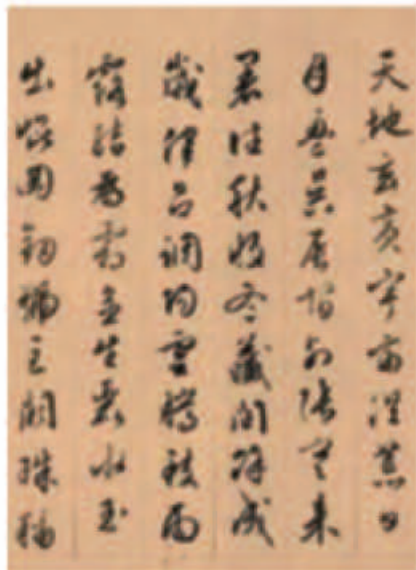 天地玄黄宇宙洪荒日
月盈昃辰宿列張寒来
暑往秋收冬藏閏餘成
歲律呂調陽雲騰致雨
露結為霜金生麗水玉
出崑岡劍號巨闕珠稱